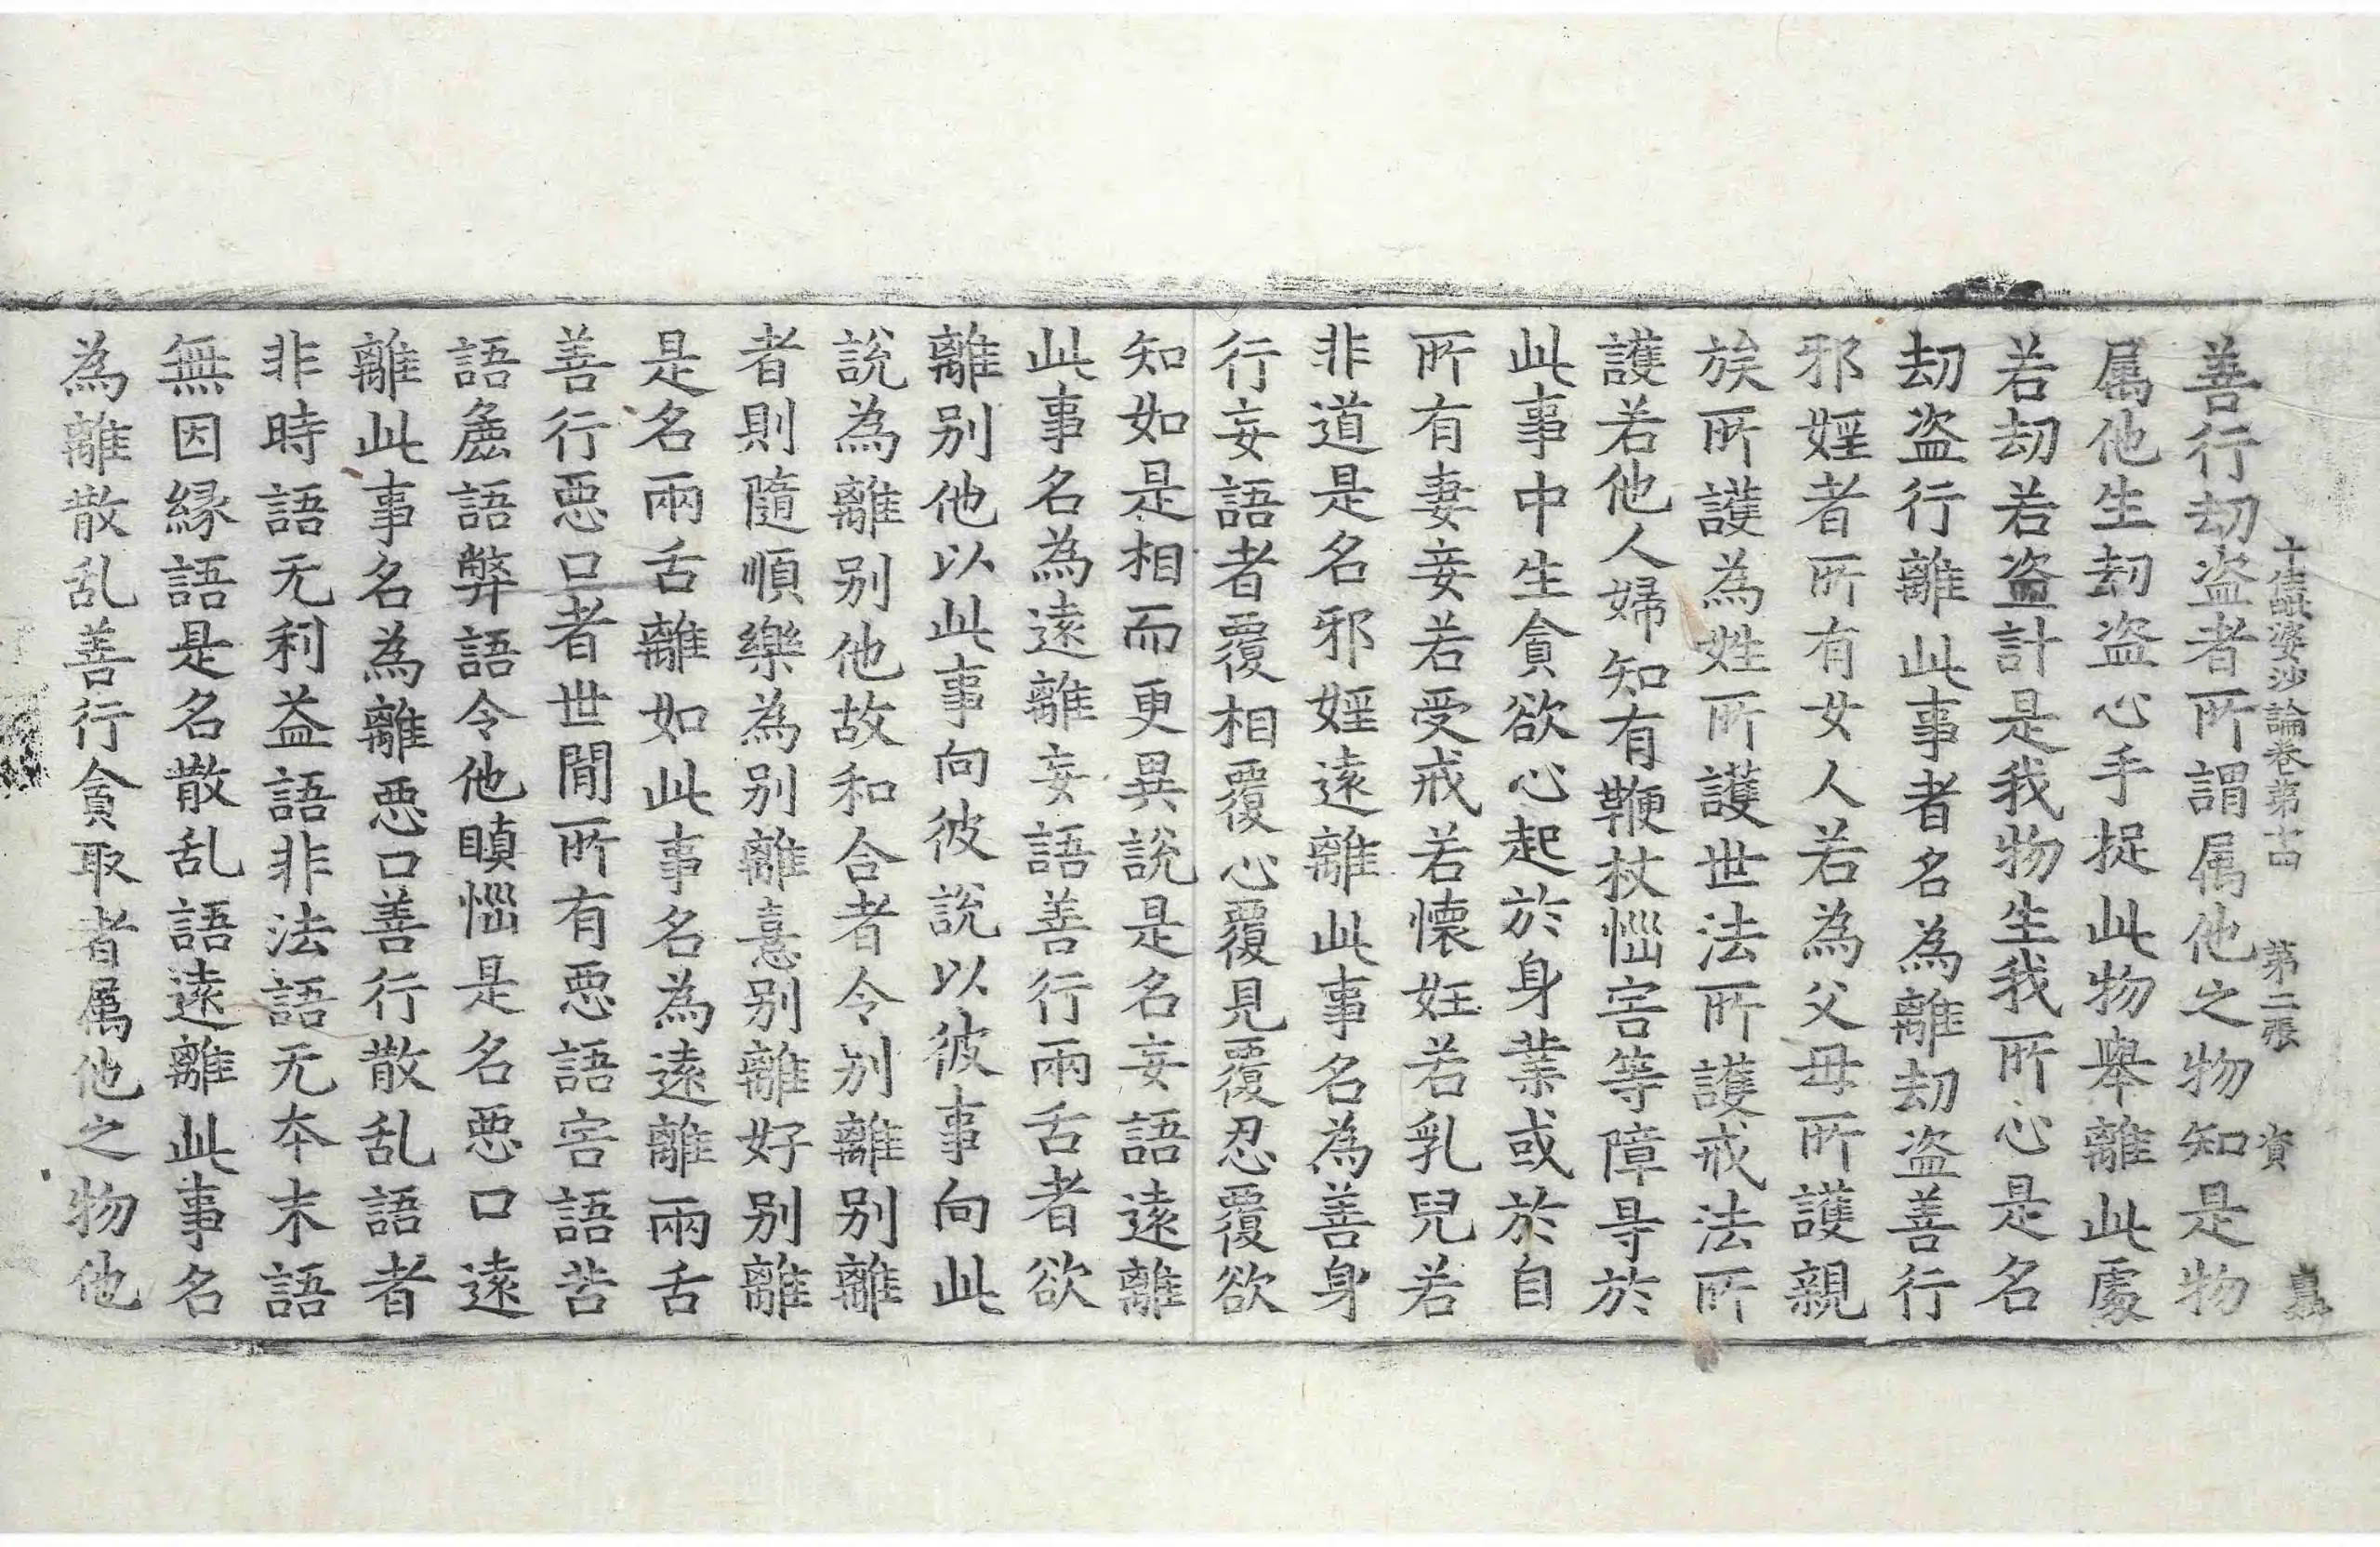 十住毗婆沙論卷第十四　第二張　資　真
善行劫盗者所謂属他之物知是物
属他生刧盗心手捉此物舉離此處
若刧若盗計是我物生我所心是名
劫盗行離此事者名為離劫盗善行
邪婬者所有女人若為父母所護親
族所護為姓所護世法所護戒法所
護若他人婦知有鞭杖惱害等障㝵於
此事中生貪欲心起於身業或於自
所有妻妾若受戒若懷妊若乳兒若
非道是名邪婬遠離此事名為善身
行妄語者覆相覆心覆見覆忍覆欲
知如是相而更異說是名妄語遠離
此事名為遠離妄語善行兩舌者欲
離别他以此事向彼說以彼事向此
說為離别他故和合者令别離别離
者則隨順樂為别離憙别離好别離
是名兩舌離如此事名為遠離兩舌
善行惡口者世間所有惡語害語苦
語麁語弊語令他瞋惱是名惡口遠
離此事名為離惡口善行散乱語者
非時語无利益語非法語无本末語
無因縁語是名散乱語遠離此事名
為離散乱善行貪取者属他之物他